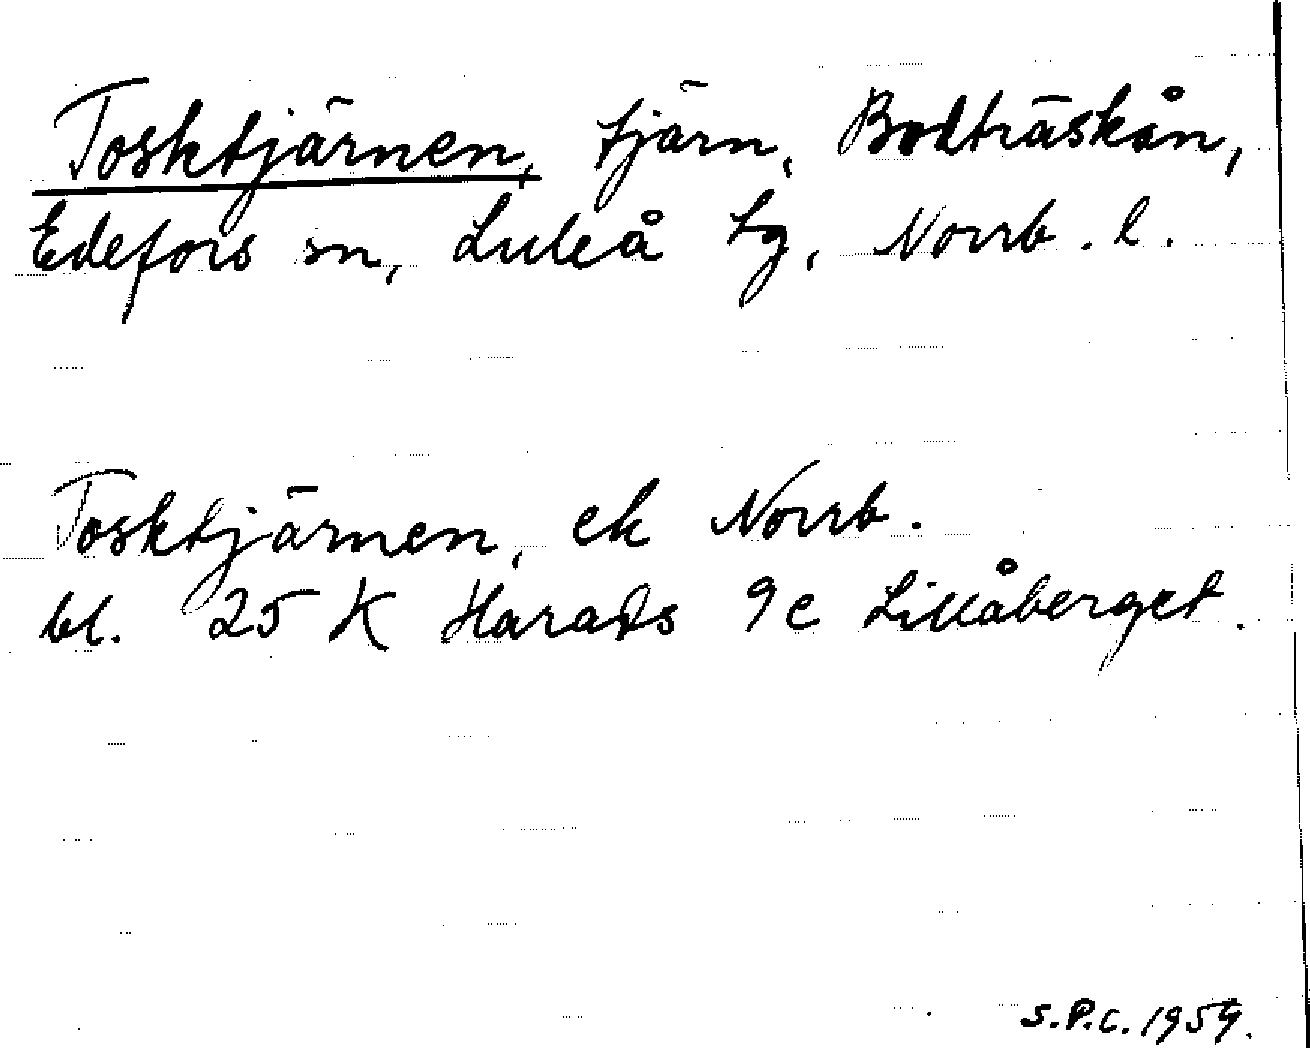 Tosktjärnen, tjärn, Bodträskån,
Edefors sn, Luleå tg, Norrb. l.
Tosktjärnen, ek Norrb.
bl. 25 K Harads 9 c Lillåberget.
S.P.C. 1959.